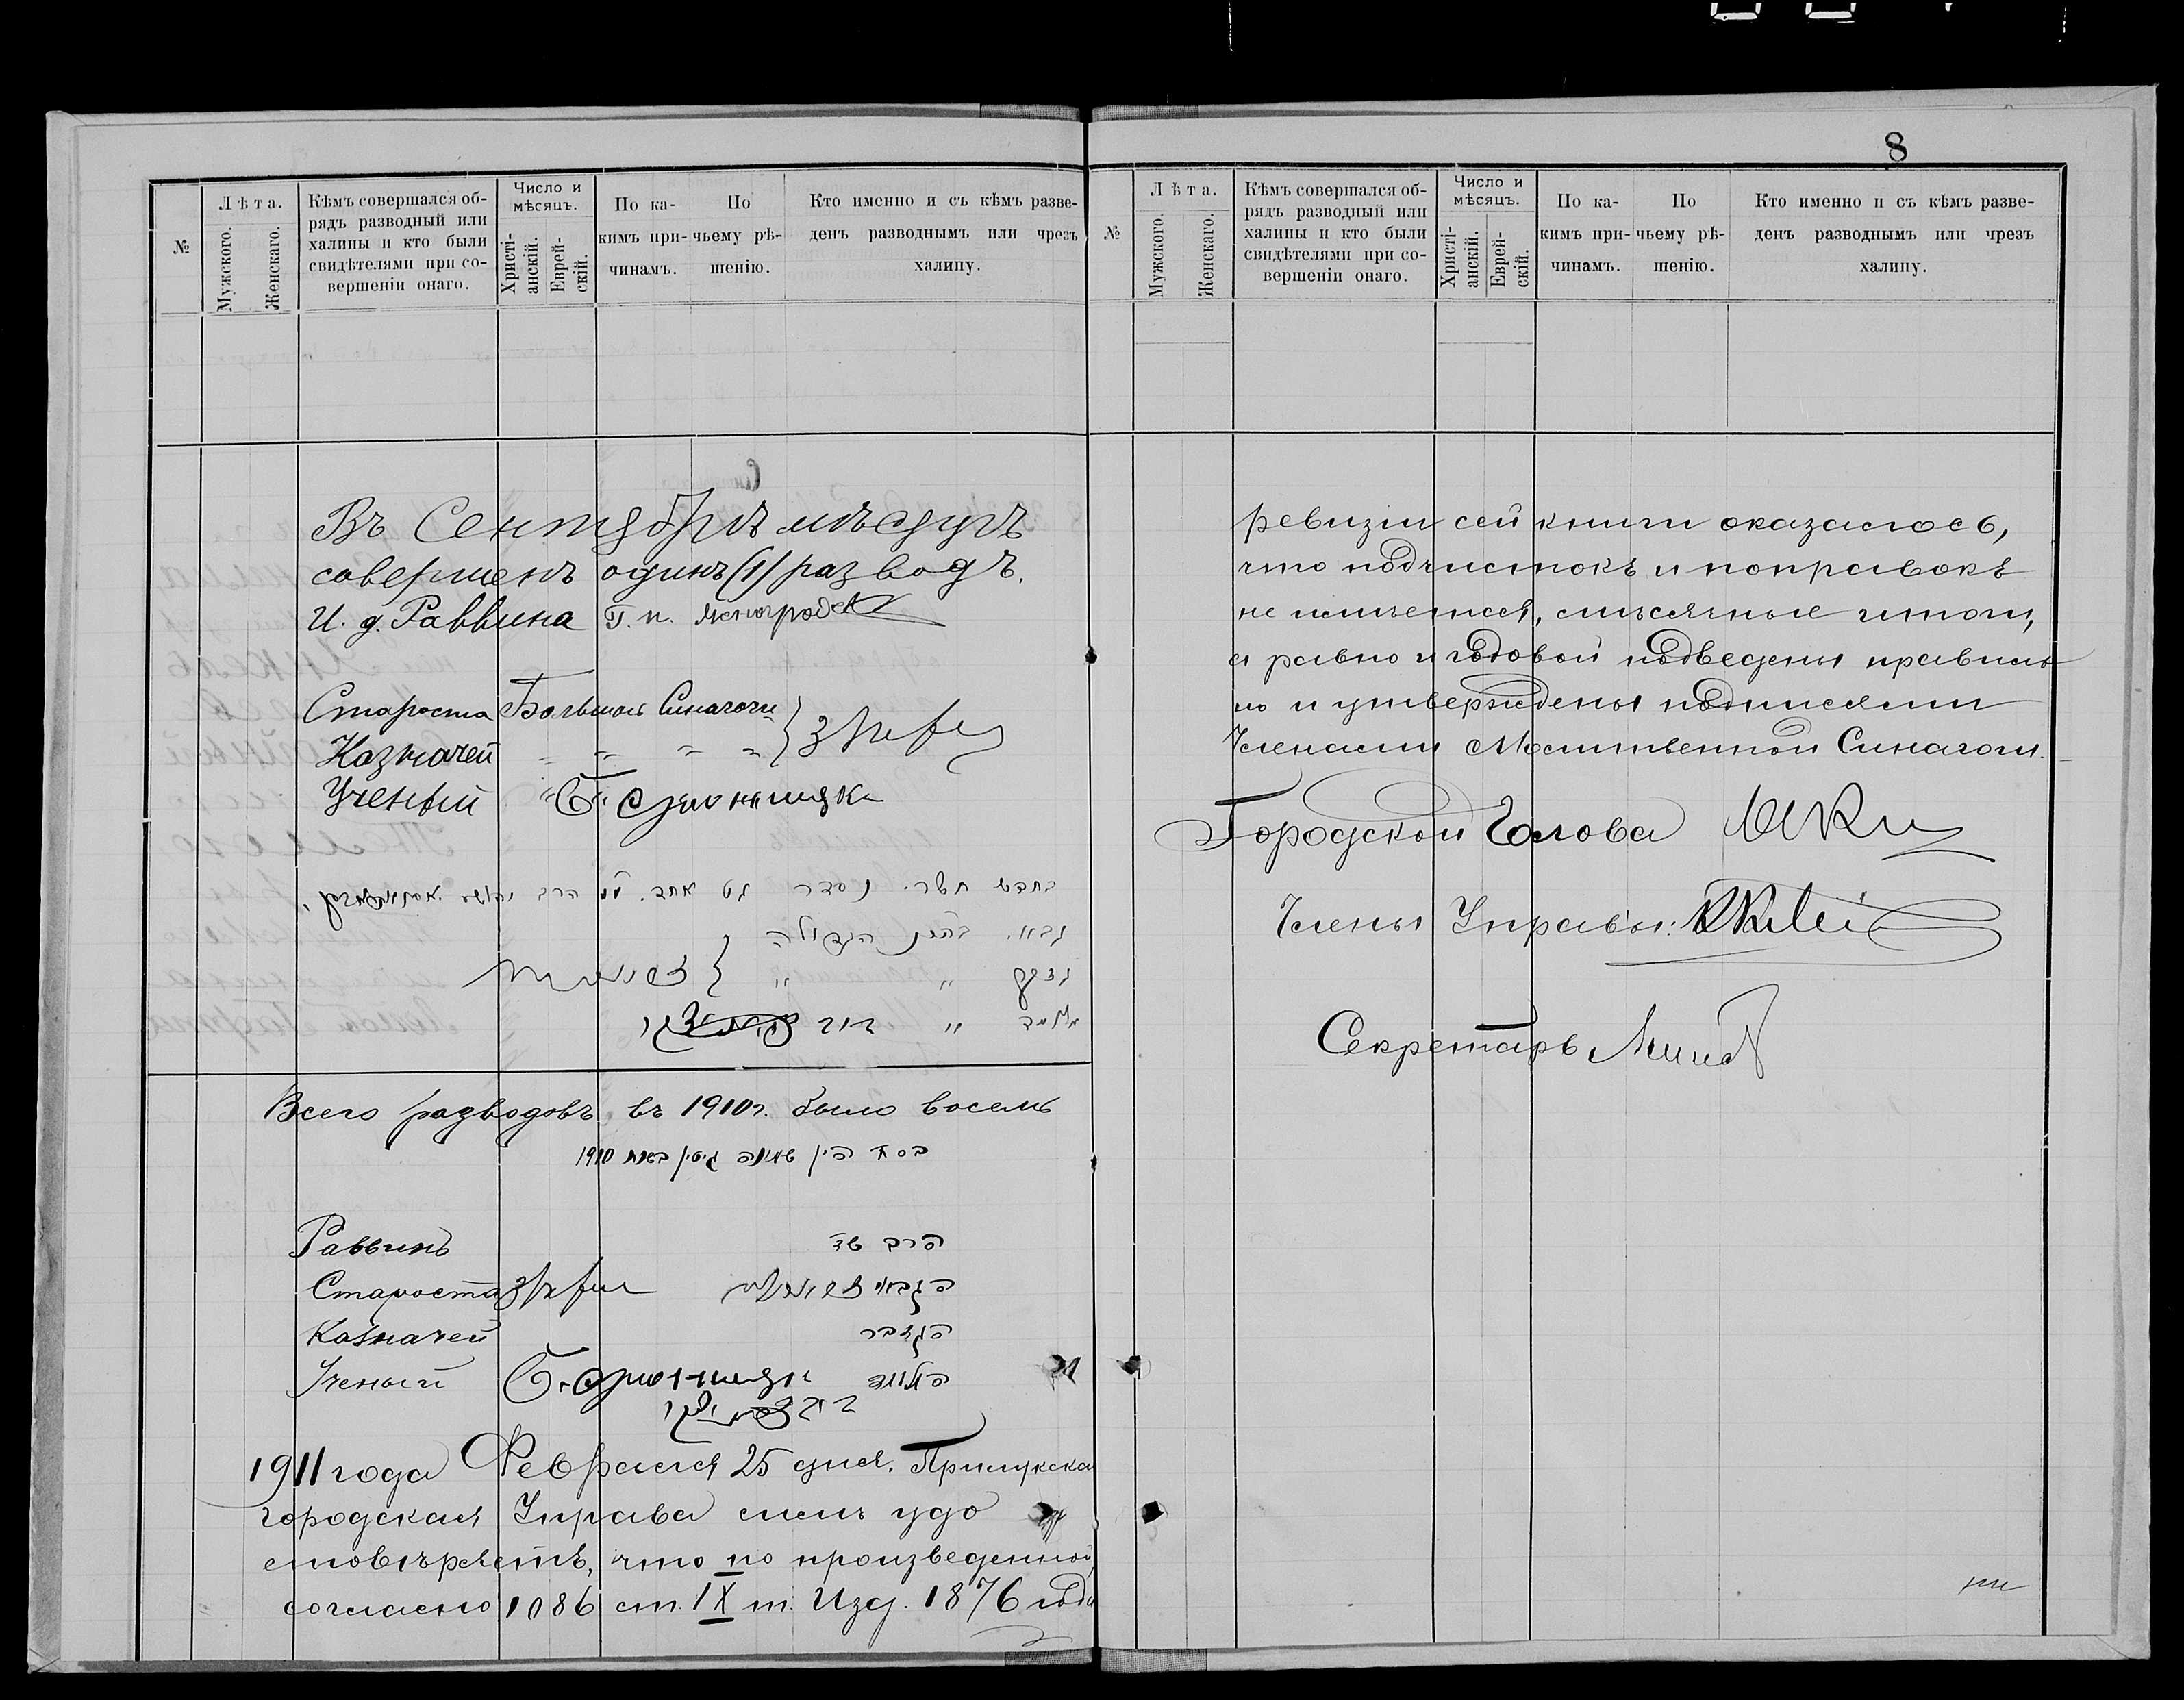 №
Лѣта.
Мужскаго.
Женскаго.
Кѣмъ совершался об-
рядъ разводный или
халицы и кто были
свидѣтелями при со-
вершеніи онаго.
Число и
мѣсяцъ.
Христі-
анскій.
Еврей-
скій.
По ка-
кимъ при-
чинамъ.
По
чьему рѣ-
шенію.
Кто именно и съ кѣмъ разве-
денъ разводнымъ или чрезъ
халицу.
Въ Сентябрѣ мѣсяцѣ
совершенъ одинъ (1) разводъ.
И. д. Раввина
Староста Большой Синагоги
Казначей " " "
Ученый "
בחדש תשרי נסדר גט אחד. הרב
גבאי בהכנ הגדולה
" "
"
Всего разводовъ въ 1910 г. было восемь
בסה היו שמונה גיטין בשנת 1910
Раввинъ
הרב
Староста
הגבאי
Казначей
הגזבר
Ученый
1911 года Февраля 25 дня. Прилукская
городская Управа симъ удо
стовѣряетъ, что по произведенной,
согласно 1086 ст. IX т. Изд. 1876 года
8
№
Лѣта.
Мужскаго.
Женскаго.
Кѣмъ совершался об-
рядъ разводный или
халицы и кто были
свидѣтелями при со-
вершеніи онаго.
Число и
мѣсяцъ.
Христі-
анскій.
Еврей-
скій.
По ка-
кимъ при-
чинамъ.
По
чьему рѣ-
шенію.
Кто именно и съ кѣмъ разве-
денъ разводнымъ или чрезъ
халицу.
ревизіи сей книги оказалось,
что подчистокъ и поправокъ
не имѣется, мѣсячные итоги,
а равно и годовой подведены правиль
но и утверждены подписями
Членами Молитвенной Синагоги.
Городской Голова
Члены Управы:
Секретарь